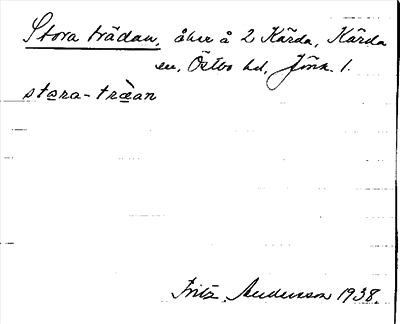 Stora trädan, åker å 2 Kärda, Kärda
sn, Östbo hd, Jönk. l.
stora-træ̀an
Fritz Anderson 1938.